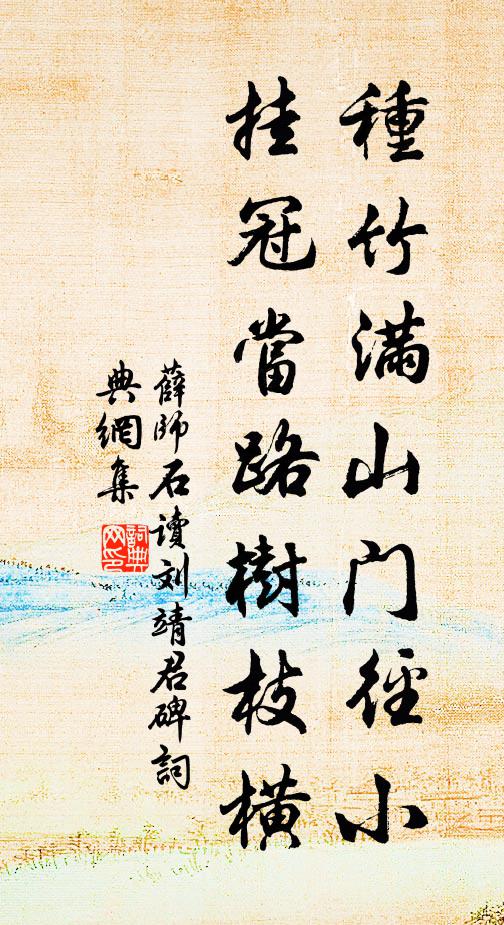 種竹滿山门徑小
挂冠當路樹枝橫
薛師石讀刘靖君碑詞
典網集
詞典
网印